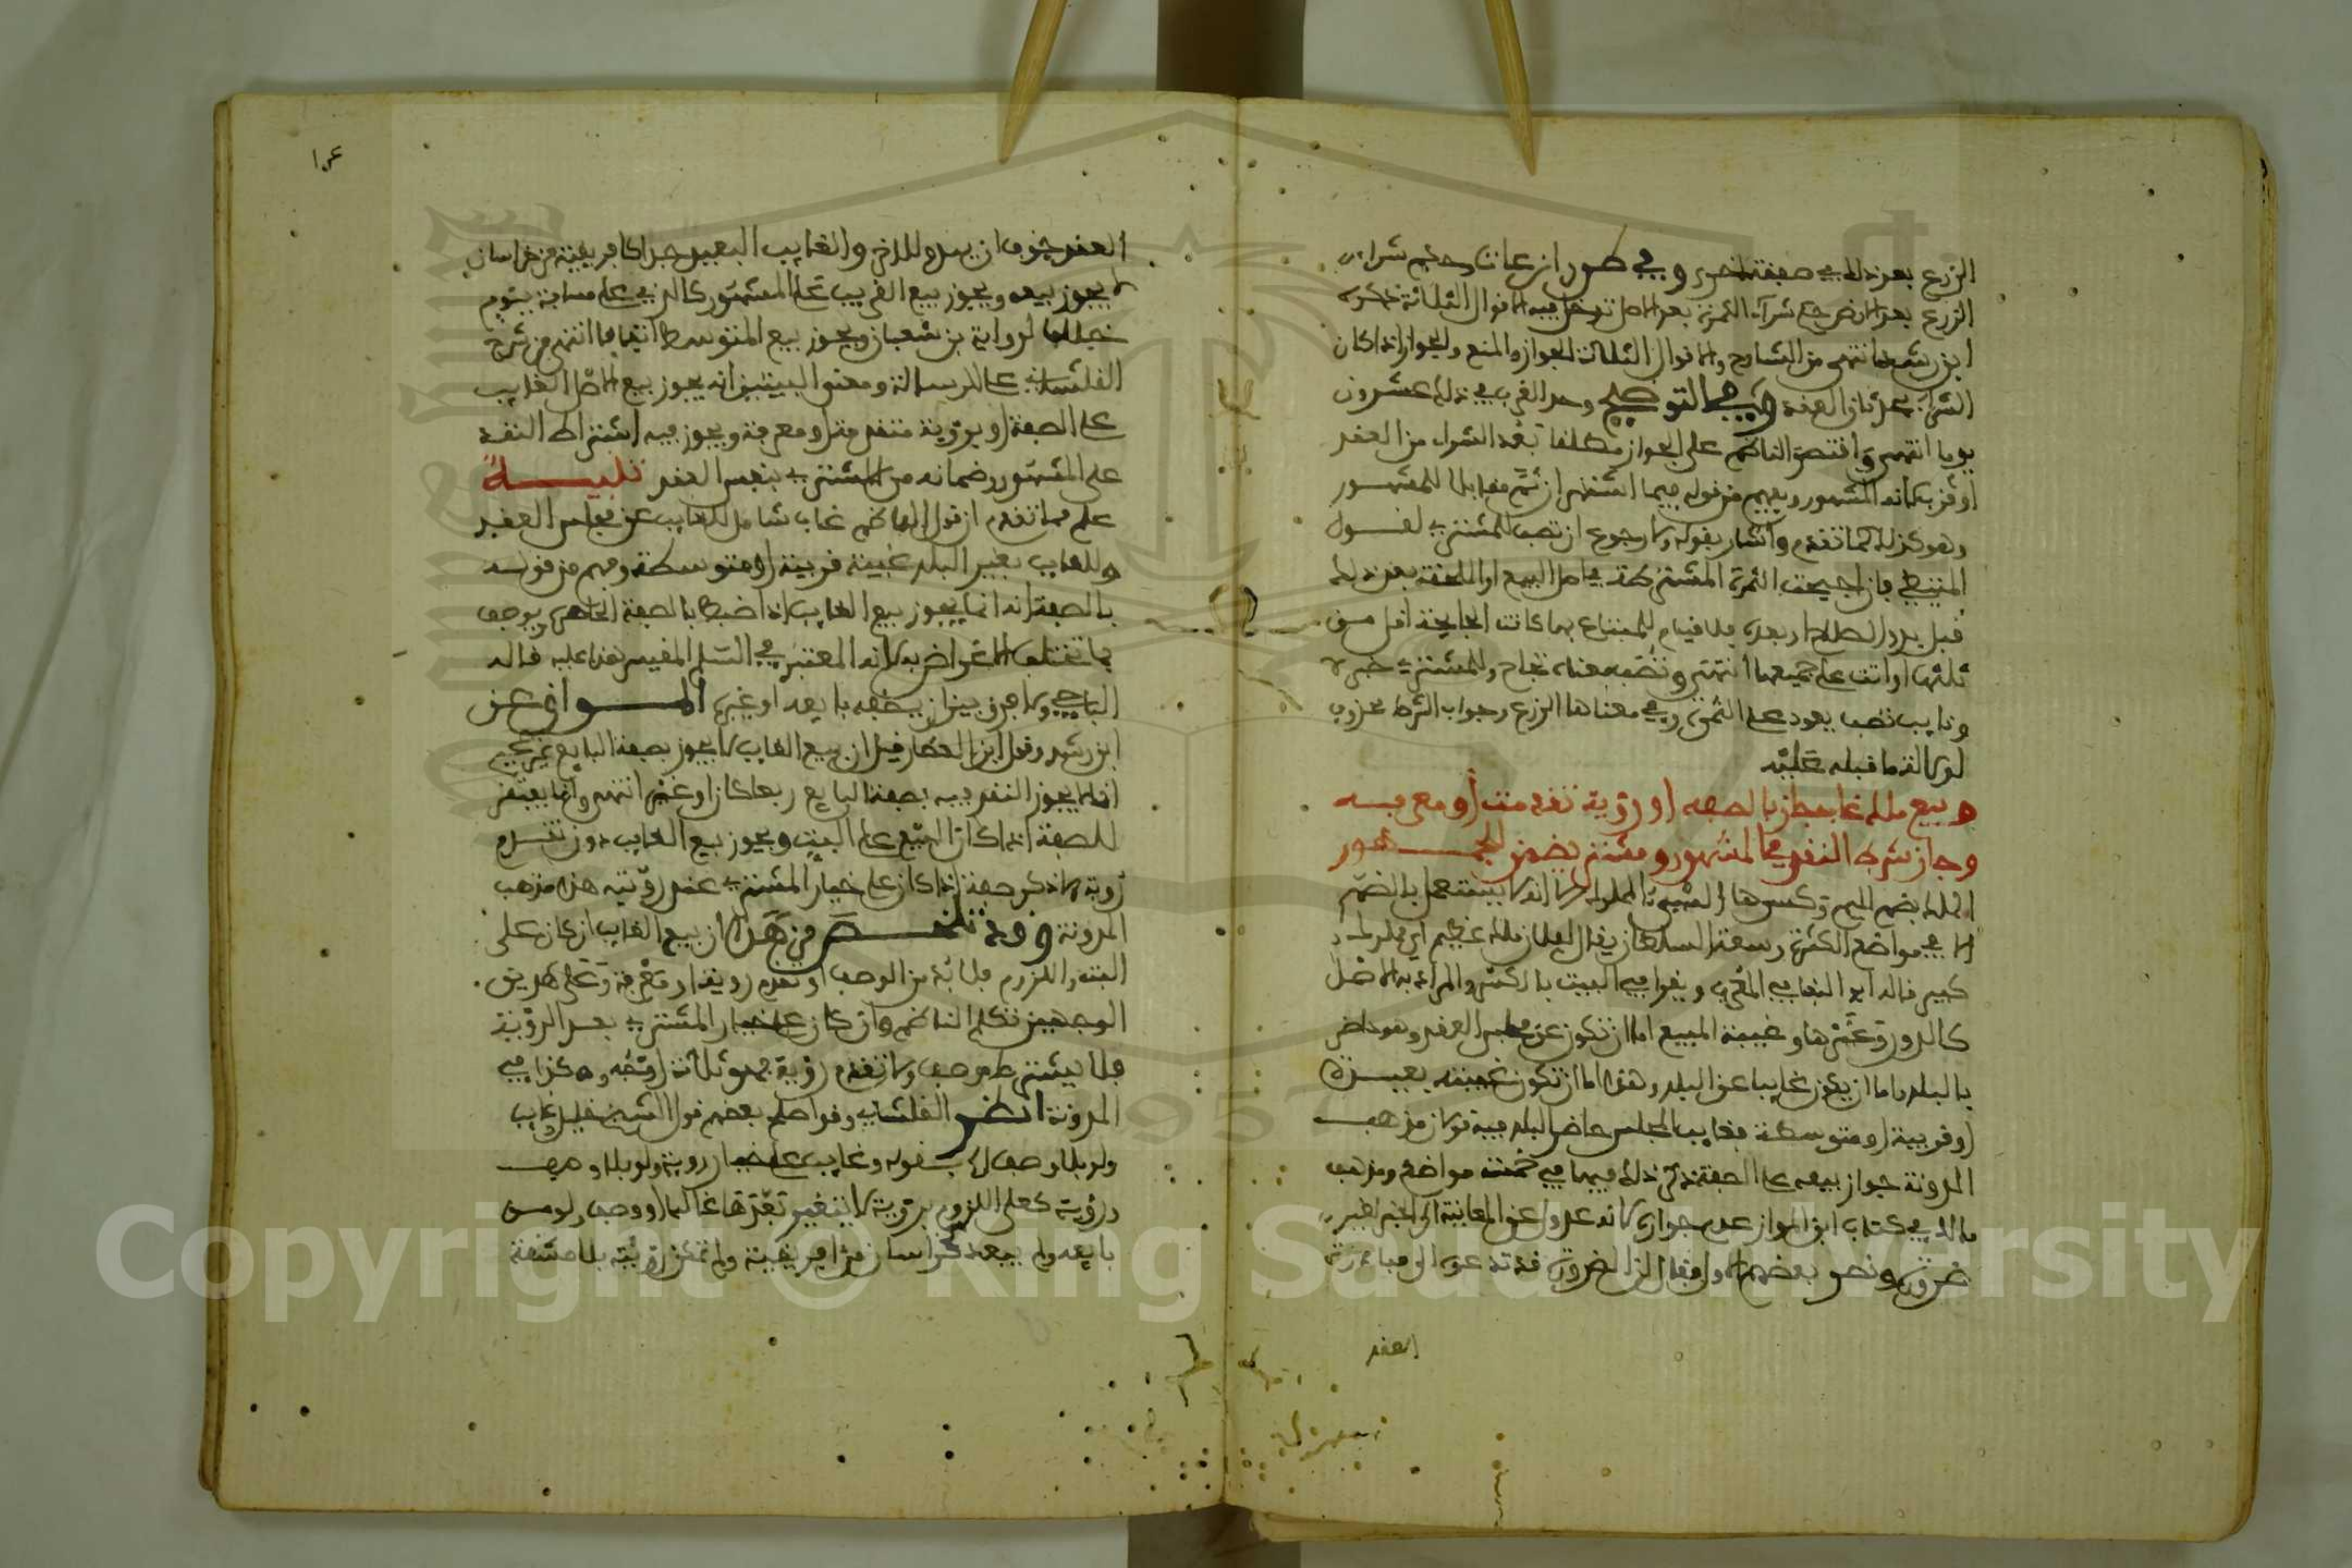 الزرع بعد ذلك في صفقة اخرى وفي طرر ابن عات وحكم شراء
الزرع بعد الارض حكم شراء الثمرة بعد الاصل تدخل فيه الاقوال الثلاثة ذكره
ابن رشد انتهى من الشارح والاقوال الثلاثة الجواز والمنع والجواز اذا كان
الشراء بحدثان العقد وفي التوضيح وحد القرب في ذلك عشرون
يوما انتهى واقتصر الناظم على الجواز مطلقا بعد الشراء من العقد
او قرب كانه المشهور ويفهم من قوله فيما اشتهر ان ثم مقابلا للمشهور
وهو كذلك كما تقدم واشار بقوله ولا رجوع ان تصب للمشتري لقول
المتيطي فان اجيحت الثمرة المشترطة في اصل البيع او الملحقة بعد ذلك
قبل بدو الصلاح او بعده فلا قيام للمبتاع بها كانت الجايحة اقل من
ثلثها او اتت على جميعها انتهى وتصب معناه تجاح وللمشتري خبر لا
ونايب تصب يعود على الثمرة وفي معناها الزرع وجواب الشرط محذوف
لدلالة ما قبله عليه
وبيع ملك غاب جاز بالصفه او رؤية تقدمت او معرفه
وجاز شرط النقد في المشهور ومشتر يضمن للجمهور
الملك بضم الميم وكسرها الشيء المملوك الا انه لا يستعمل بالضم
الا في مواضع الكثرة وسعة السلطان يقال لفلان ملك عظيم اي مملوك
كثير قاله ابو البقاء في المقرب ويقرا في البيت بالكسر والمراد به الاصل
كالدور وغيرها وغيبة المبيع اما ان تكون عن مجلس العقد وهو حاضر
بالبلد واما ان يكون غايبا عن البلد وهذا اما ان تكون غيبته بعيدة
او قريبة او متوسطة فغايب المجلس حاضر البلد فيه قولان مذهب
المدونة جواز بيعه على الصفة ذكر ذلك فيها في خمسة مواضع ومذهب
مالك في كتاب ابن المواز عدم جوازه لانه عدول عن المعاينة الى الخبر لغير
ضرورة ونحو بعضهم الاول فقال ان الضرورة قد تدعو الى مبادرة
العقد
العقد خوف ان يبدو للاخر والغايب البعيد جدا كافريقية من خراسان
لا يجوز بيعه ويجوز بيع القريب على المشهور كالذي على مسافة يوم
خلافا لرواية بن شعبان ويجوز بيع المتوسط اتفاقا انتهى من شرح
القلشاني على الرسالة ومعنى البيتين انه يجوز بيع الاصل الغايب
على الصفة او برؤية متقدمة او معرفة ويجوز فيه اشتراط النقد
على المشهور وضمانه من المشتري بنفس العقد تنبيه
علم مما تقدم ان قول الناظم غاب شامل للغايب عن مجلس العقد
وللغايب بغير البلد غيبة قريبة او متوسطة وفهم من قوله
بالصفة انه انما يجوز بيع الغايب اذا ضبط بالصفة الحاصرة بوصف
بما تختلف الاغراض به لانه المعتبر في السلم المقيس هذا عليه قاله
الباجي ولا فرق بين ان يصفه بايعه او غيره المواق عن
ابن رشد وقول ابن العطار قيل ان بيع الغايب لا يجوز بصفة البايع غير صحيح
انما لا يجوز النقد فيه بصفة البايع ربعا كان او غيره انتهى وانما يفتقر
للصفة اذا كان البيع على البت ويجوز بيع الغايب دون تقدم
رؤية ولا ذكر صفة اذا كان على خيار المشتري عند رؤيته هذا مذهب
المدونة وقد تلخص من هذا ان بيع الغايب ان كان على
البت واللزوم فلا بد من الوصف او تقدم رؤية او معرفة وعلى هذين
الوجهين تكلم الناظم وان كان على خيار المشتري بعد الرؤية
فلا يشترط وصف ولا تقدم رؤية فهو ثلاثة اوجه وهكذا في
المدونة انظر القلشاني وقد اصلح بعضهم قول الشيخ خليل وغايب
ولو بلا وصف الخ بقوله وغايب على خيار رؤية ولو بلا وصف
ورؤية كعلى اللزوم برؤية لا يتغير بعدها غالبا او وصف ولو من
بايعه ولم يبعد كخراسان من افريقية ولم تمكن رؤيته بلا مشقة